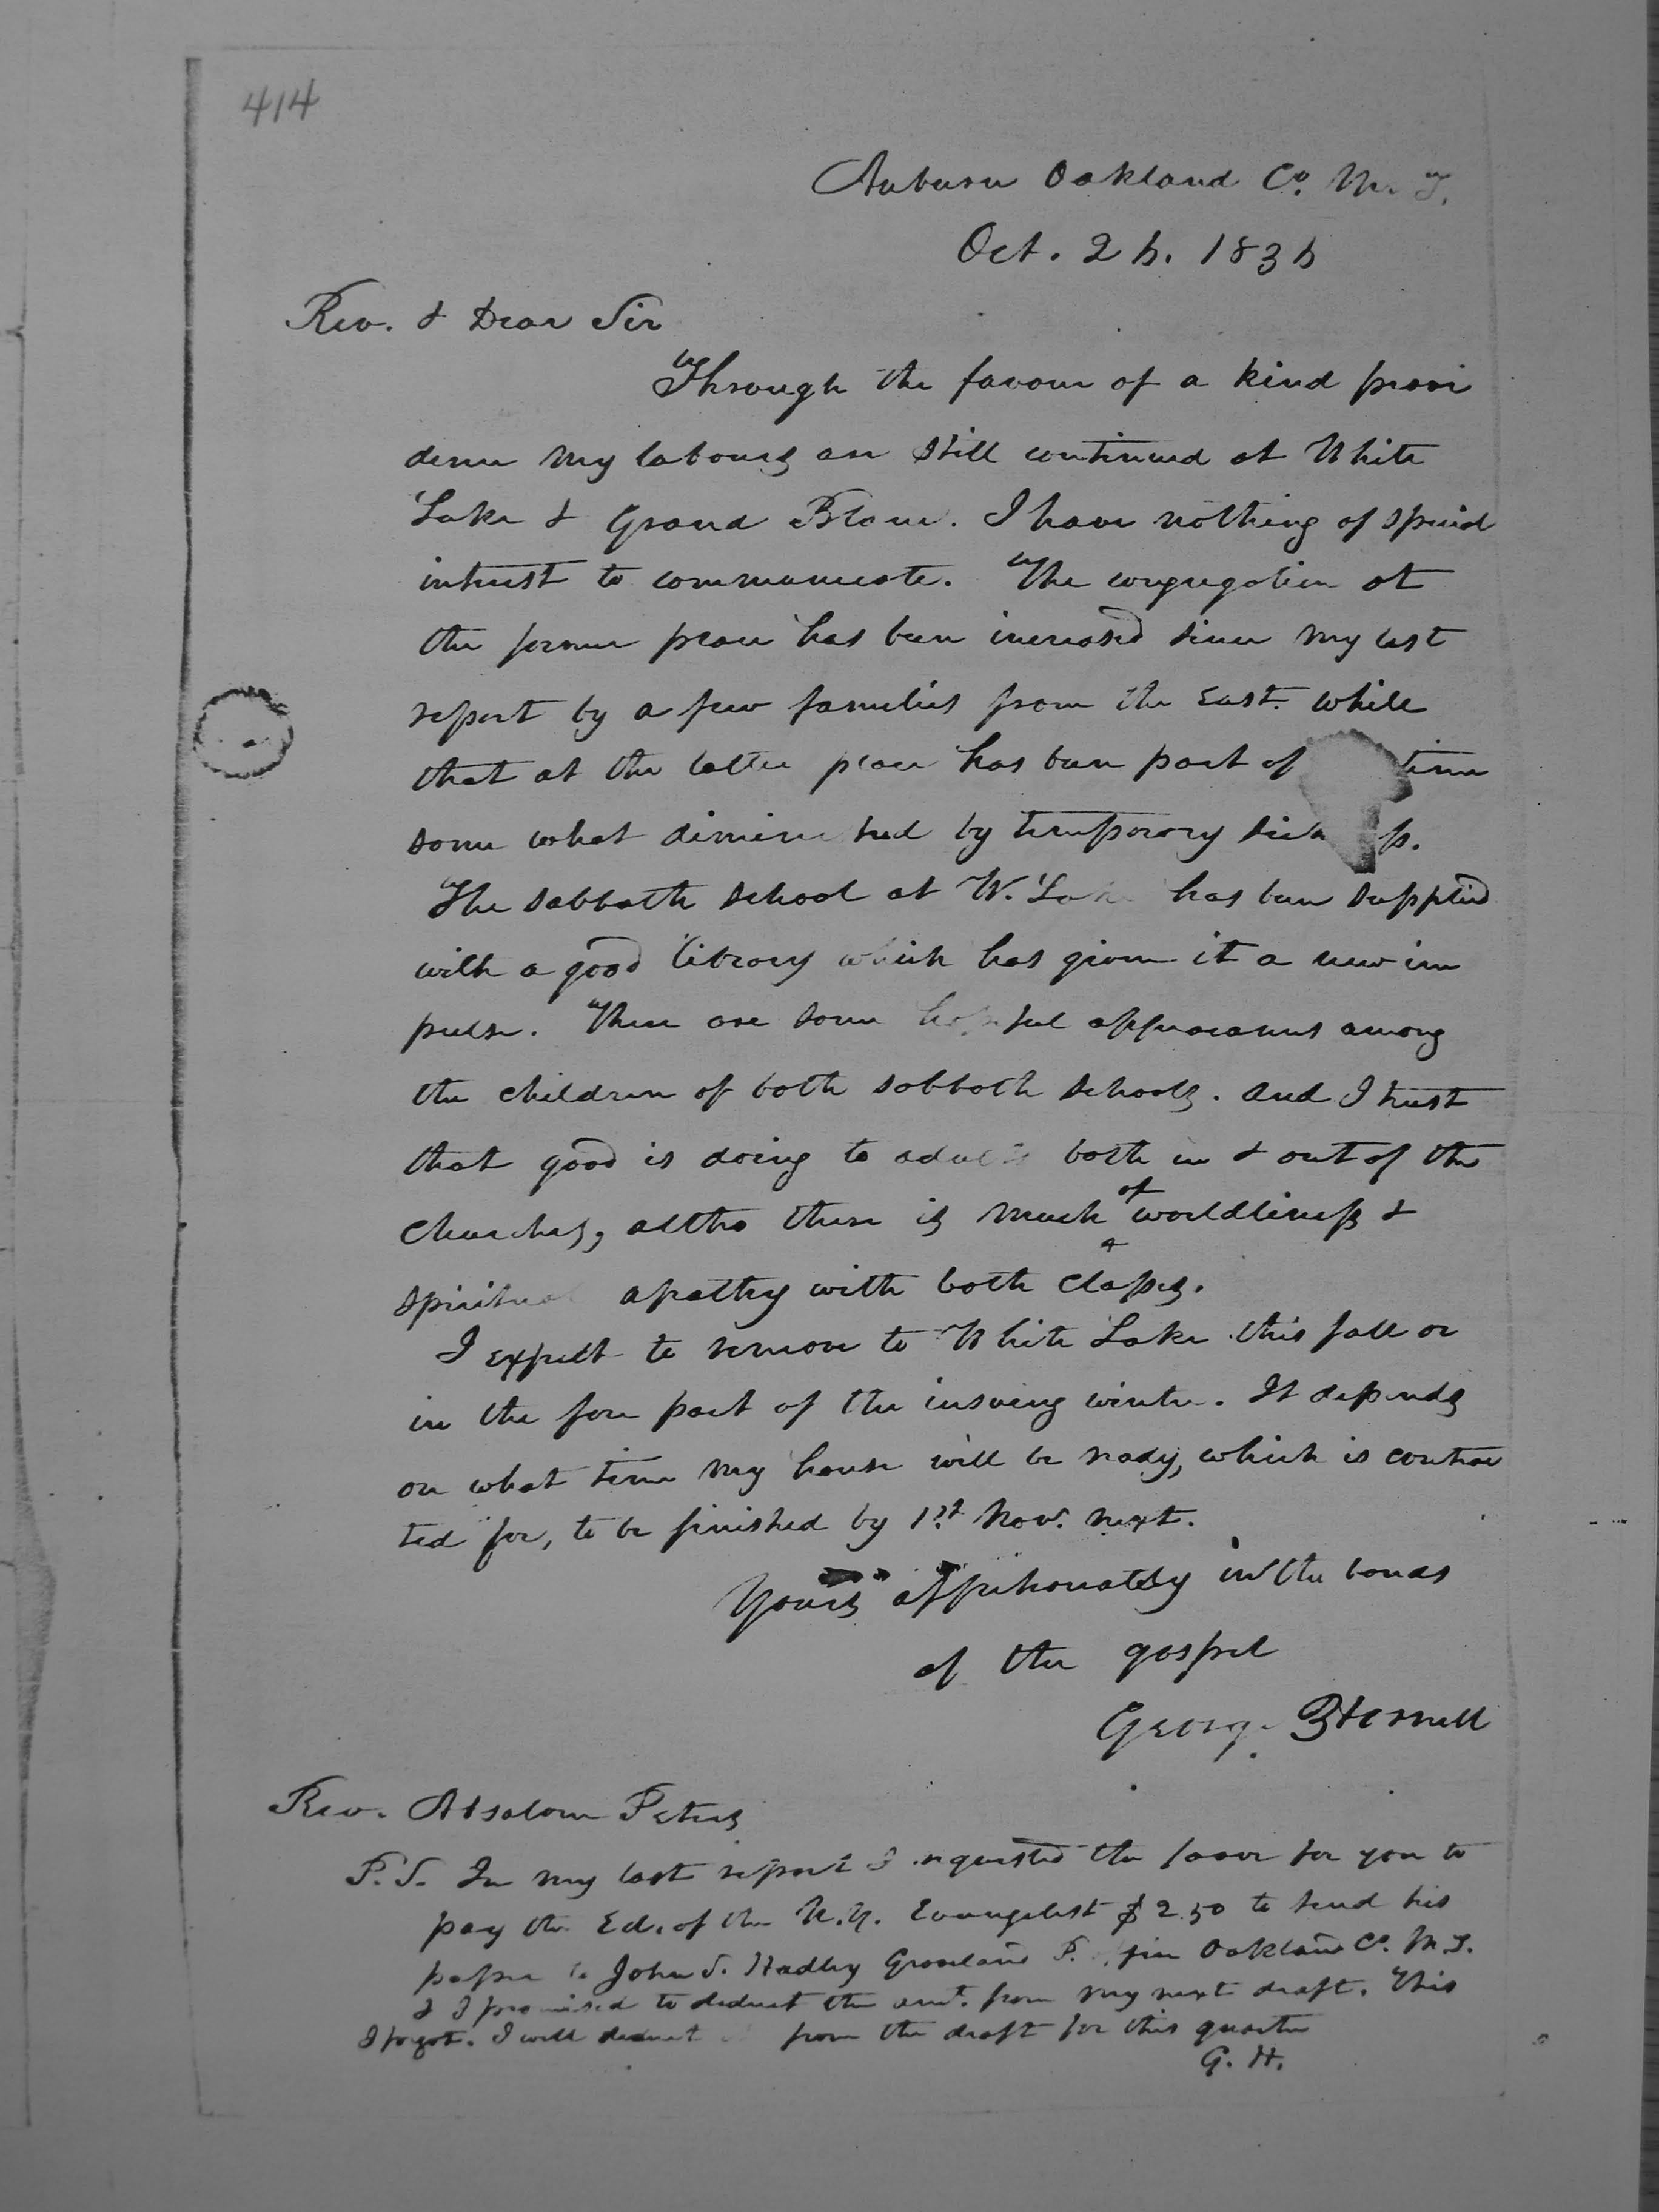 414
Auburn Oakland Co. M. T.
Oct. 25. 1835
Rev. & Dear Sir
Through the favour of a kind provi
dence my labours are still continued at White
Lake & Grand Blanc. I have nothing of special
interest to communicate. The congregation at
the former place has been increased since my last
report by a few families from the East. while
that at the latter place has been part of time
some what diminished by temporary sickness.
The sabbath school at W. Lake has been supplied
with a good library which has given it a new im
pulse. There are some hopeful appearances among
the children of both sabbath schools. and I trust
that good is doing to adults both in & out of the
churches, altho there is much of worldliness &
spiritual apathy with both classes.
I expect to remove to White Lake this fall or
in the fore part of the insuing winter. It depends
on what time my house will be ready, which is contrac
ted for, to be finished by 1st Nov. next.
Yours affectionately in the bonds
of the gospel
George Hornell
Rev. Absalom Peters
P.S. In my last report I requested the favor for you to
pay the Ed. of the N.Y. Evangelist $2.50 to send his
paper to John S. Hadley Groveland P. Oakland Co. M.T.
& I promised to deduct the amt. from my next draft. This
I forgot. I will deduct from the draft for this quarter
G. H.